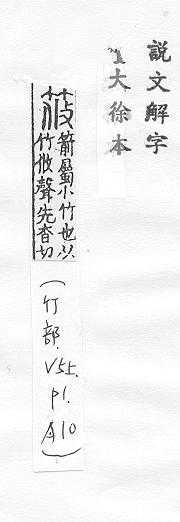 說文解字
大徐本
筱
箭屬小竹也从
竹攸聲先杳切
(竹部.
V5上.
P1.
A10)